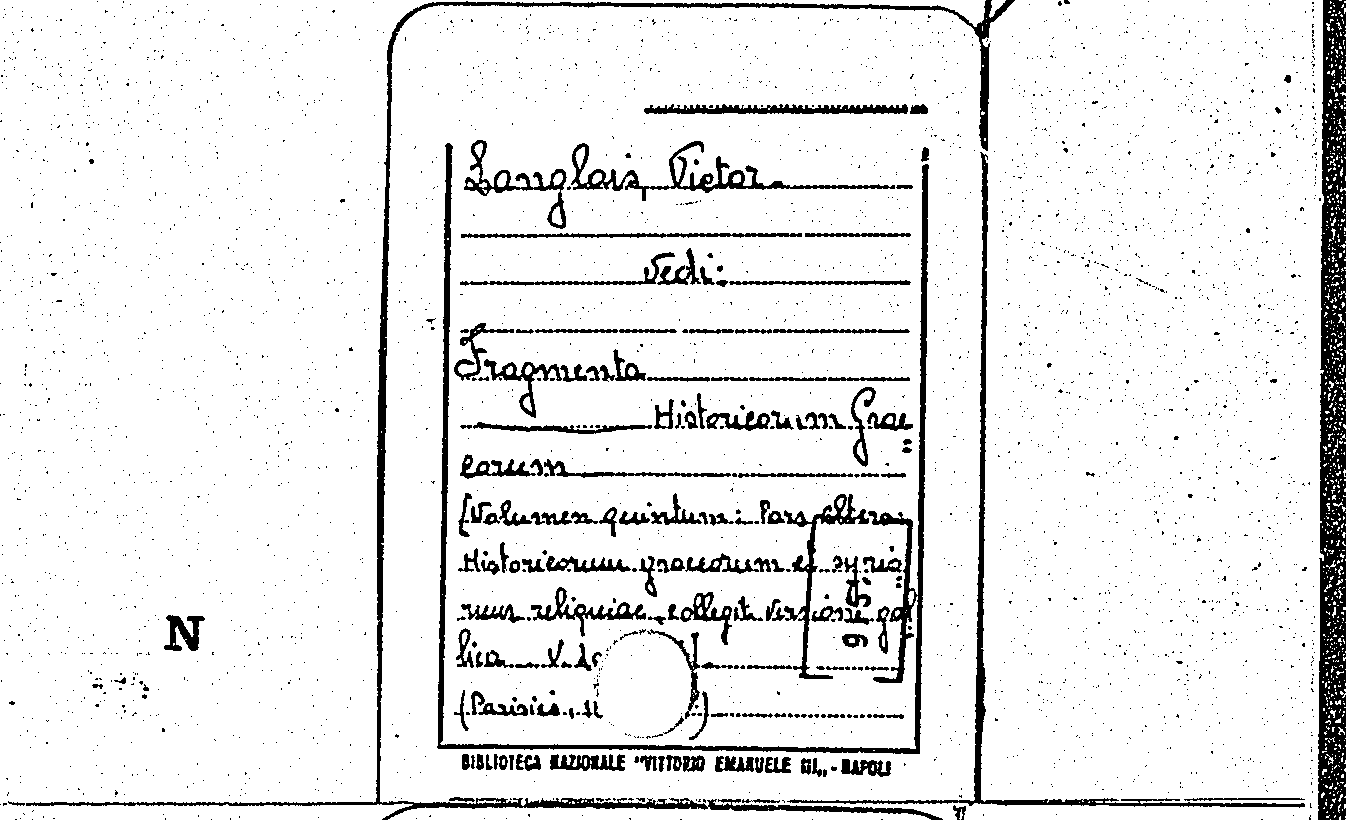 Langlais, Victor.
Vedi:
Fragmenta
Historicorum Grae=
corum
[Volumen quintum: Pars altera:
Historicorum graecorum et syrio=
rum reliquiae, collegit versione gal=
lica V.
(Parisiis,
N
BIBLIOTECA NAZIONALE "VITTORIO EMANUELE III„ - NAPOLI